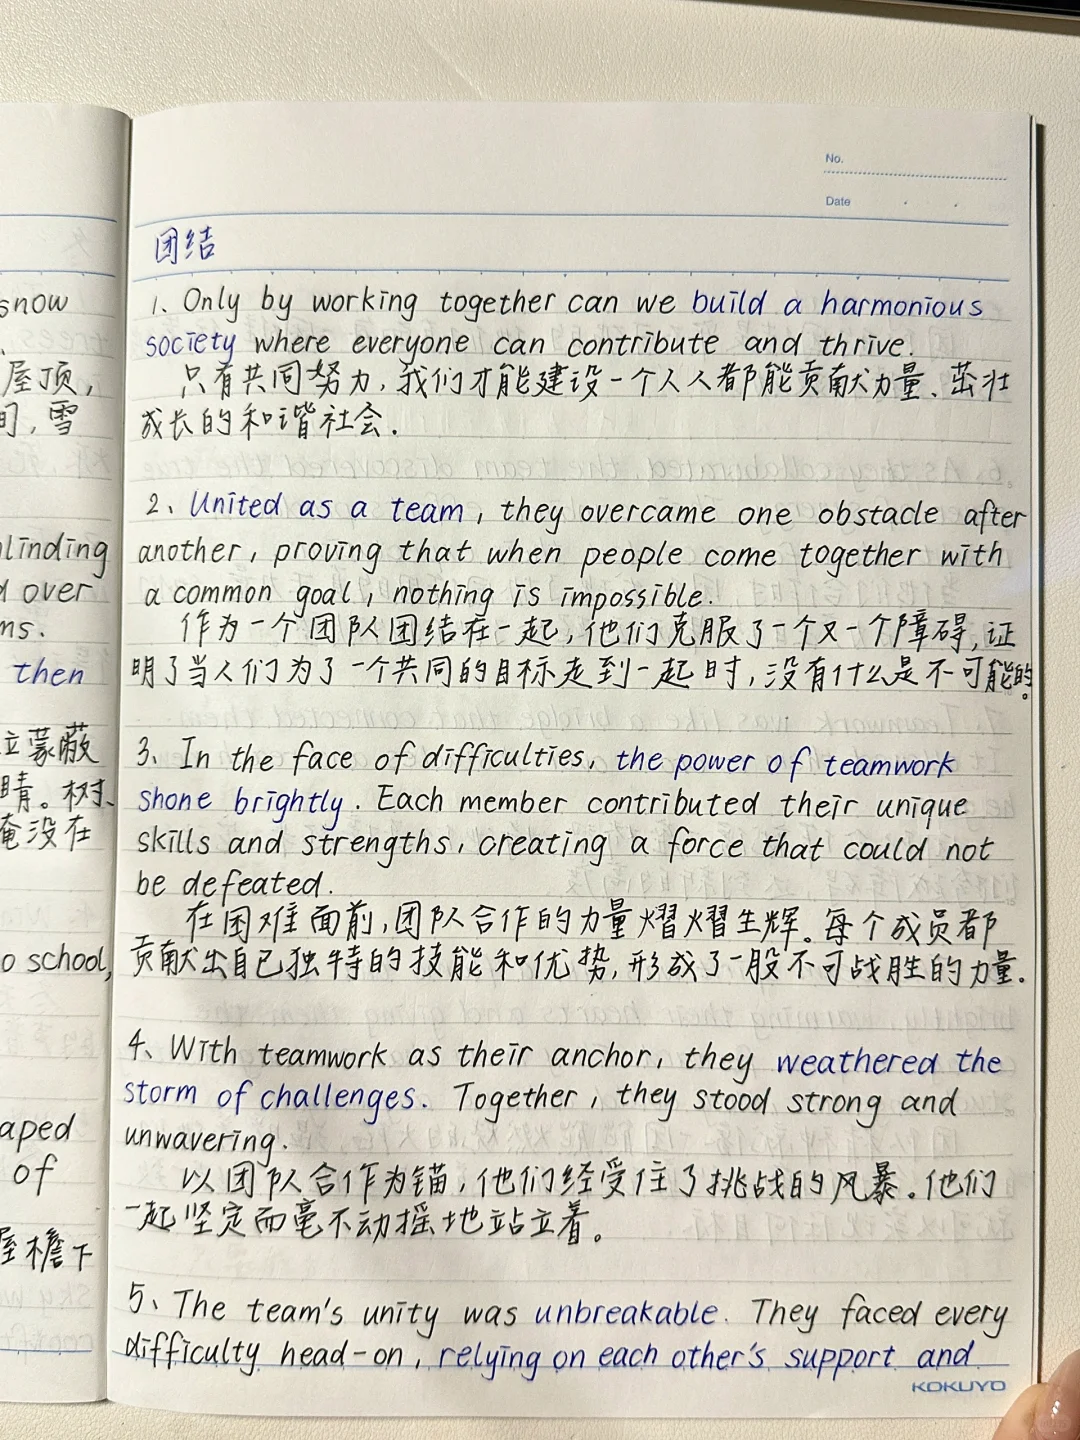 snow
屋顶,
间,雪
blinding
d over
ms.
then
立蒙蔽
睛。树、
淹没在
o school,
aped
of
屋檐下
No.
Date
团结
1、Only by working together can we build a harmonious
society where everyone can contribute and thrive.
只有共同努力,我们才能建设一个人人都能贡献力量、茁壮
成长的和谐社会.
2、United as a team, they overcame one obstacle after
another, proving that when people come together with
a common goal, nothing is impossible.
作为一个团队团结在一起,他们克服了一个又一个障碍,证
明了当人们为了一个共同的目标走到一起时,没有什么是不可能的。
3、In the face of difficulties, the power of teamwork
shone brightly. Each member contributed their unique
skills and strengths, creating a force that could not
be defeated.
在困难面前,团队合作的力量熠熠生辉。每个成员都
贡献出自己独特的技能和优势,形成了一股不可战胜的力量.
4、With teamwork as their anchor, they weathered the
storm of challenges. Together, they stood strong and
unwavering.
以团队合作为锚,他们经受住了挑战的风暴。他们
一起坚定而毫不动摇地站立着。
5、The team's unity was unbreakable. They faced every
difficulty head-on, relying on each other's support and
KOKUYO